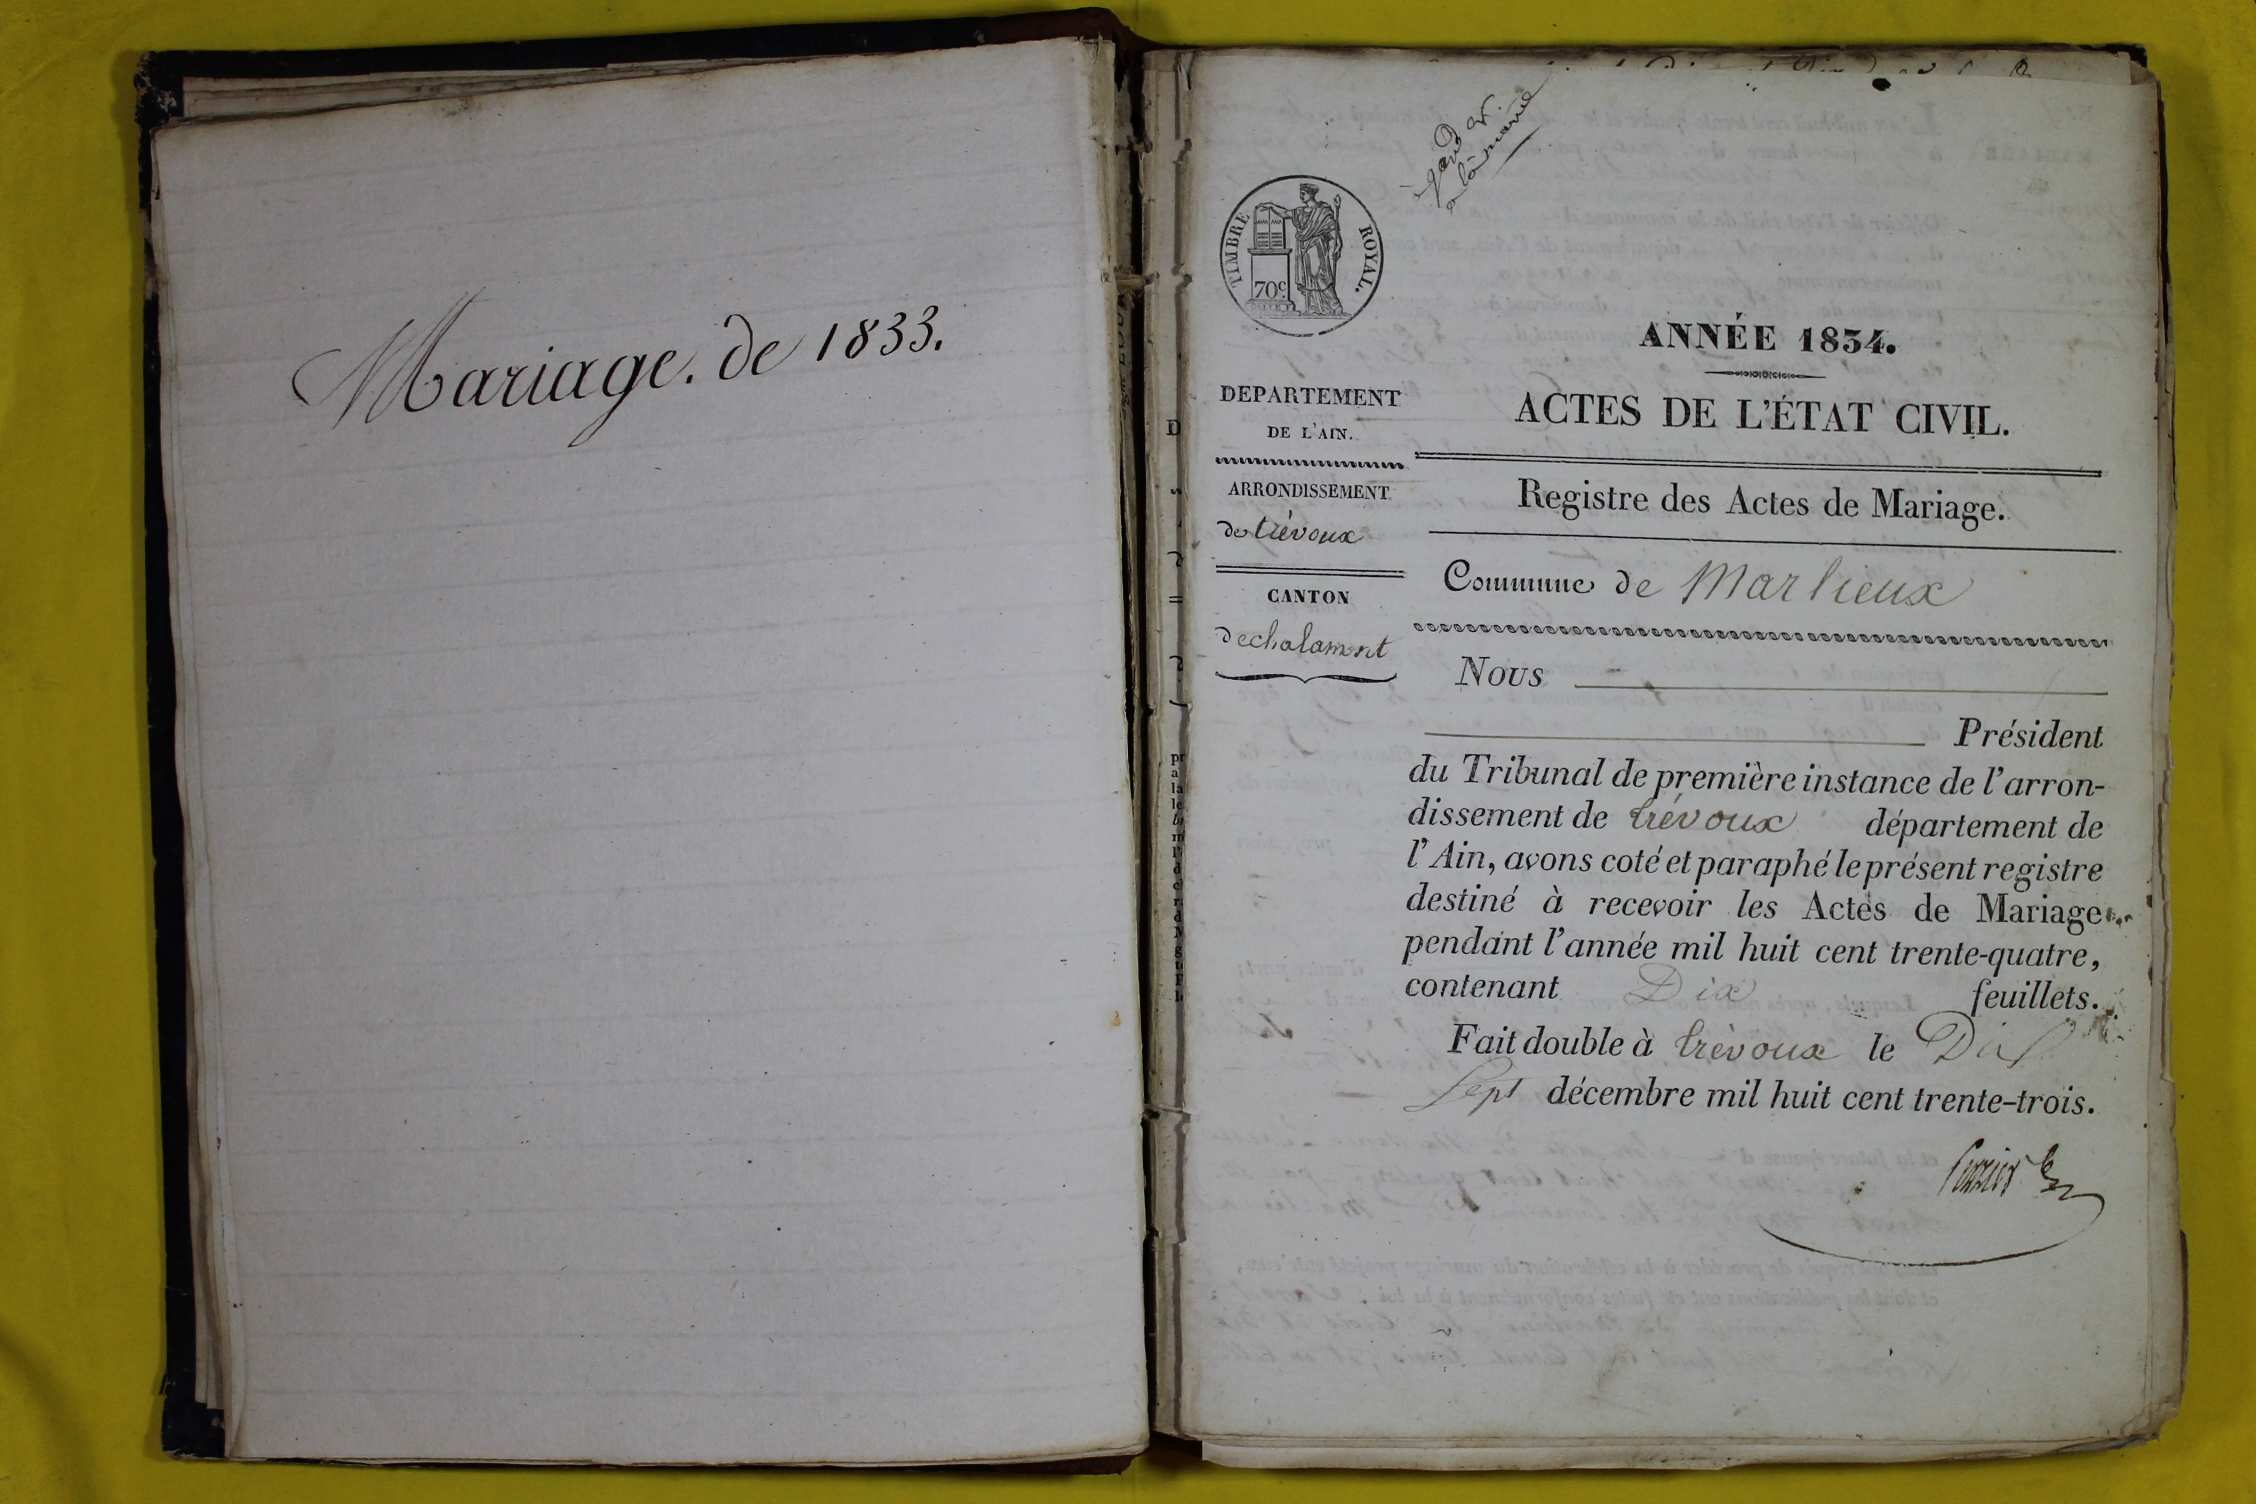 Mariage. de 1833.
TIMBRE ROYAL.
70c
ANNÉE 1834.
DEPARTEMENT
DE L'AIN.
ARRONDISSEMENT
de trévoux
CANTON
de chalamont
ACTES DE L'ÉTAT CIVIL.
Registre des Actes de Mariage.
Commune de Marlieux
Nous
Président
du Tribunal de première instance de l'arron-
dissement de trévoux département de
l'Ain, avons coté et paraphé le présent registre
destiné à recevoir les Actes de Mariage
pendant l'année mil huit cent trente-quatre,
contenant Dix feuillets.
Fait double à trévoux le Dix
Sept décembre mil huit cent trente-trois.